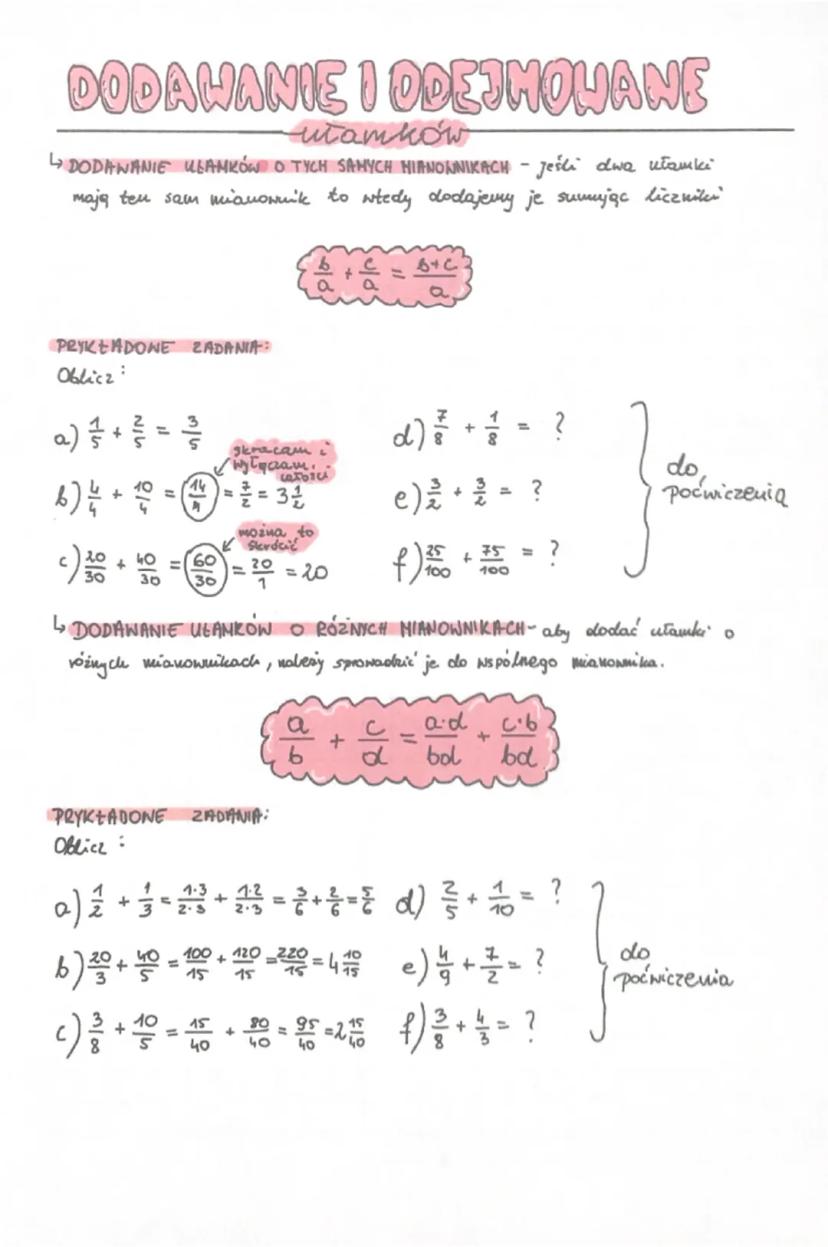 DODAWANIE I ODEJMOWANE
ułamków
↳ DODAWANIE UŁAMKÓW O TYCH SAMYCH MIANOWNIKACH - jeśli dwa ułamki
mają ten sam mianownik to wtedy dodajemy je sumując liczniki
b/a + c/a = b+c/a
PRYKŁADOWE ZADANIA:
Oblicz:
a) 1/5 + 2/5 = 3/5
skracam i
wyłączam
całości
b) 4/4 + 10/4 = 14/4 = 7/2 = 3 1/2
można to
skrócić
c) 20/30 + 40/30 = 60/30 = 20/1 = 20
d) 7/8 + 1/8 = ?
e) 3/2 + 3/2 = ?
f) 25/100 + 75/100 = ?
do
poćwiczenia
↳ DODAWANIE UŁAMKÓW O RÓŻNYCH MIANOWNIKACH - aby dodać ułamki o
różnych mianownikach, należy sprowadzić je do wspólnego mianownika.
a/b + c/d = a·d/bd + c·b/bd
PRYKŁADONE ZADANIA:
Oblicz:
a) 1/2 + 1/3 = 1·3/2·3 + 1·2/2·3 = 3/6 + 2/6 = 5/6
b) 20/3 + 40/5 = 100/15 + 120/15 = 220/15 = 4 10/15
c) 3/8 + 10/5 = 15/40 + 80/40 = 95/40 = 2 15/40
d) 2/5 + 1/10 = ?
e) 4/9 + 7/2 = ?
f) 3/8 + 4/3 = ?
do
poćwiczenia